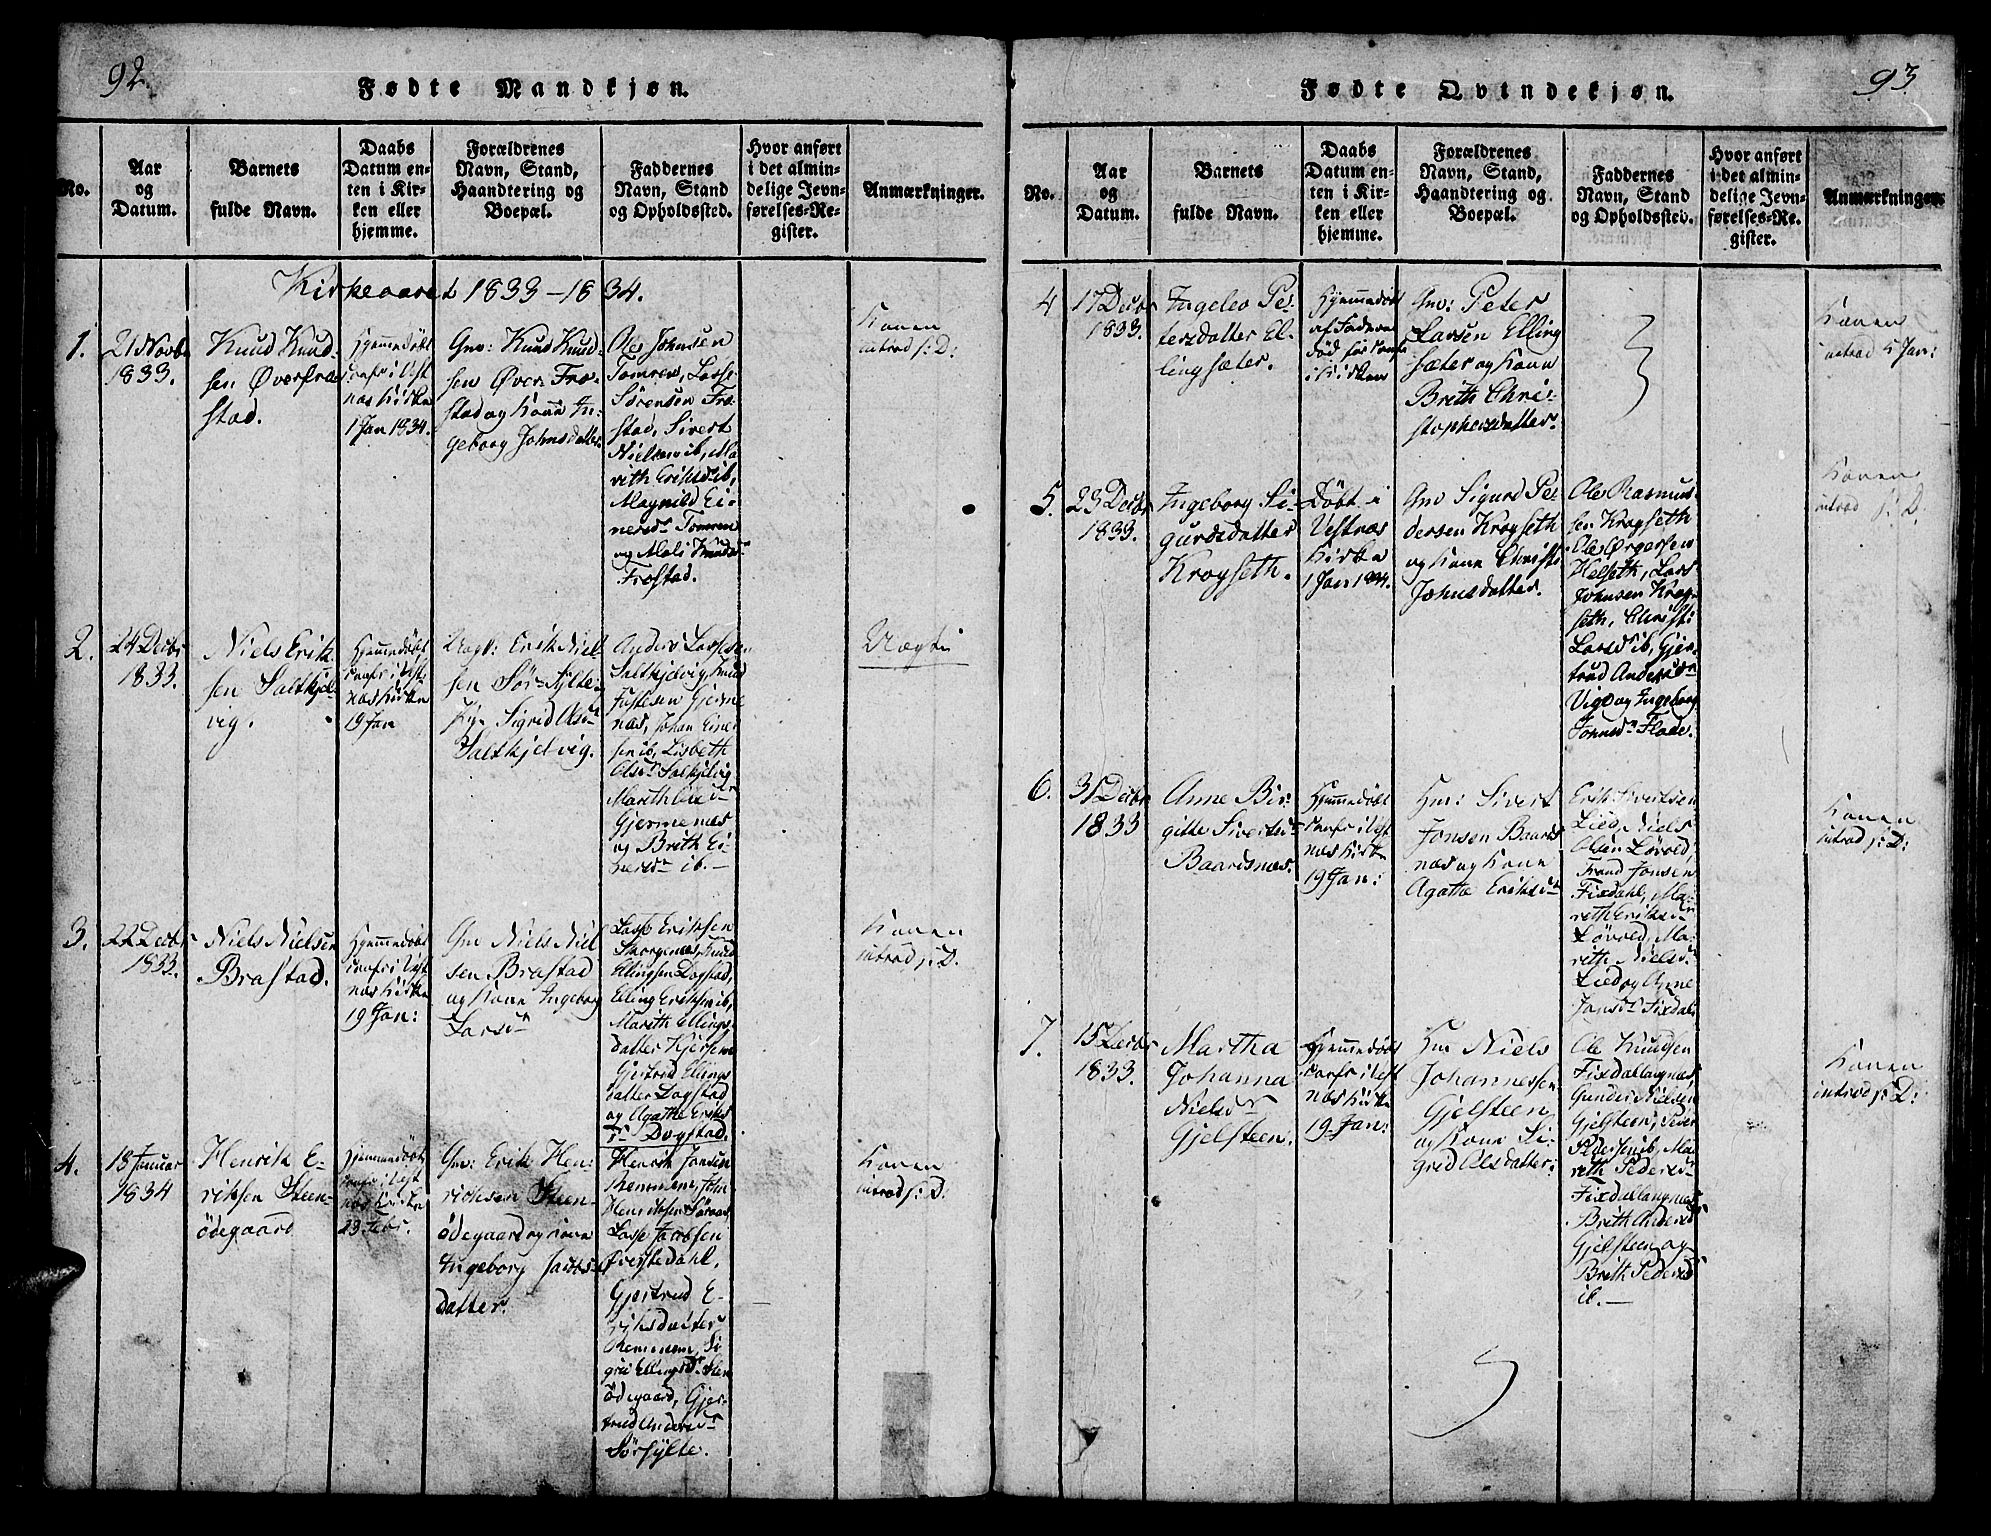 92.
Fødte Mandkjøn.
No.
Aar
og
Datum.
Barnets
fulde Navn.
Daabs
Datum en-
ten i Kir-
ken eller
hjemme.
Forældrenes
Navn, Stand,
Haandtering og
Boepæl.
Faddernes
Navn, Stand
og Opholdssted.
Hvor anført
i det almin-
delige Jevn-
førelses-Re-
gister.
Anmærkninger.
Kirkeaaret 1833-1834.
1.
21 Novbr
1833.
Knud Knud-
sen Øverfra
stad.
Hjemmedöbt
1 Jan 1834.
Gm: Knud Knud
sen Øver Fro-
stad og Kone In-
geborg Johnsdatter
Ole Johnsen
Tomren, Lasse
Sörensen Fro-
stad, Sivert
Nielsen ib, Ma
rith Eriksdr ib,
Magnild Ei-
nersdr Tomren
og Mali Knudsdr
Frostad.
Konen
introd s: D:
2.
24 Decbr
1833.
Niels Erik
sen Saltkjel-
vig.
Hjemmedöbt
næs Kirke
19 Jan
Erik Niel
sen Sör-Sylte
Sigrid Olsdr
Saltkjelvig.
Anders Lassesen
Saltkjelvig, Knud
Gjerme
næs, Johan Einer
sen ib, Lisbeth
Olsdr Saltkjelvig
Gjermenæs
og Brith Ei-
nersdr ib. -
3.
22 Decbr
1833.
Niels Nielsen
Brastad.
Hjemmedöbt
næs Kirke
19 Jan:
Gm Niels Niel
sen Brastad
og Kone Ingeborg
Larsdr
Lasse Eriksen
Skorgenæs, Knud
Ellingsen Dogstad,
Elling Eriksen ib,
Marith Ellings
datter Kjersem
Gjertrud Ellings
datter Dogstad
og Agathe Eriks
dr Dogstad.
Konen
introd s: D.
4.
18 Januar
1834
Henrik E-
riksen Steen-
ödegaard
Hjemmedöbt
næs Kirke
23 Febr.
Gm: Erik Hen-
richsen Steen-
ödegaard og Kone
Ingeborg Jacobs-
datter.
Henrik Jonsen
Remmem, John
Henriksen Söraas
Lasse Jacobsen
Øverstedahl,
Gjertrud E-
riksdatter
Remmem, Si
gri Ellingsdr Steen
ödegaard, Gjer-
trud Andersdr
Sörsylte.
Konen
introd s: D:
93
Fødte Qvindekjøn.
No.
Aar
og
Datum.
Barnets
fulde Navn.
Daabs
Datum en-
ten i Kir-
ken eller
hjemme.
Forældrenes
Navn, Stand,
Haandtering og
Boepæl.
Faddernes
Navn, Stand
og Opholdssted.
Hvor anført
i det almin-
delige Jevn-
førelses-Re-
gister.
Anmærkninger.
4
17 Decbr
1833.
Ingeleo Pe-
tersdatter El-
lingsæter.
Hjemmedöbt
af Faderen
död för
i Kirken
Gm: Peter
Larsen Elling
sæter og Kone
Brith Chri-
stophersdatter.
Konen
introd 5 Jan:
5.
23 Decbr
1833.
Ingeborg Si-
gursdatter
Krogseth.
Döbt i
Vestnæs
Kirke
1 Jan 1834.
Gm Sigurd Pe-
dersen Krogseth
og Kone Christi
Johnsdatter.
Ole Rasmus-
sen Krogseth
Ole Ørgersen
Helseth, Lars
Johnsen Krog
seth, Christi
Larsd ib, Gjer-
trud Andersdr
Vig og Ingeborg
Johnsdr Flode.
Konen
introd s: D.
6.
31 Decbr
1833
Anne Bir-
gitte Sivertsdr
Baardsnæs.
Hjemmedöbt
næs Kirke
19 Jan:
Hm: Sivert
Jonsen Baards
næs og Kone
Agathe Eriksdr
Erik Sivertsen
Lied, Niels
Olsen Lövold,
Trond Jonsen
Fixdahl, Ma-
reth Eriksdr
Lövold, Ma-
rith Nielsdr
Lied og Anne
Jonsdr Fixdal
Konen
introd s: D:
7.
15 Decbr
1833.
Martha
Johanna
Nielsdr
Gjelsteen.
Hjemmedöbt
næs Kirke
19 Jan:
Hm Niels
Johannessen
Gjelsteen
og Kone Si-
grid Olsdatter:
Ole Knudsen
Fixdallangnæs,
Gunder Nielsen
Gjelsteen, Peder
Pedersen ib, Ma
reth Pedersdr
Fixdallangnæs
Brith Andersdr
Gjelsteen og
Brith Pedersdr
ib. -
Konen
introd s: D: